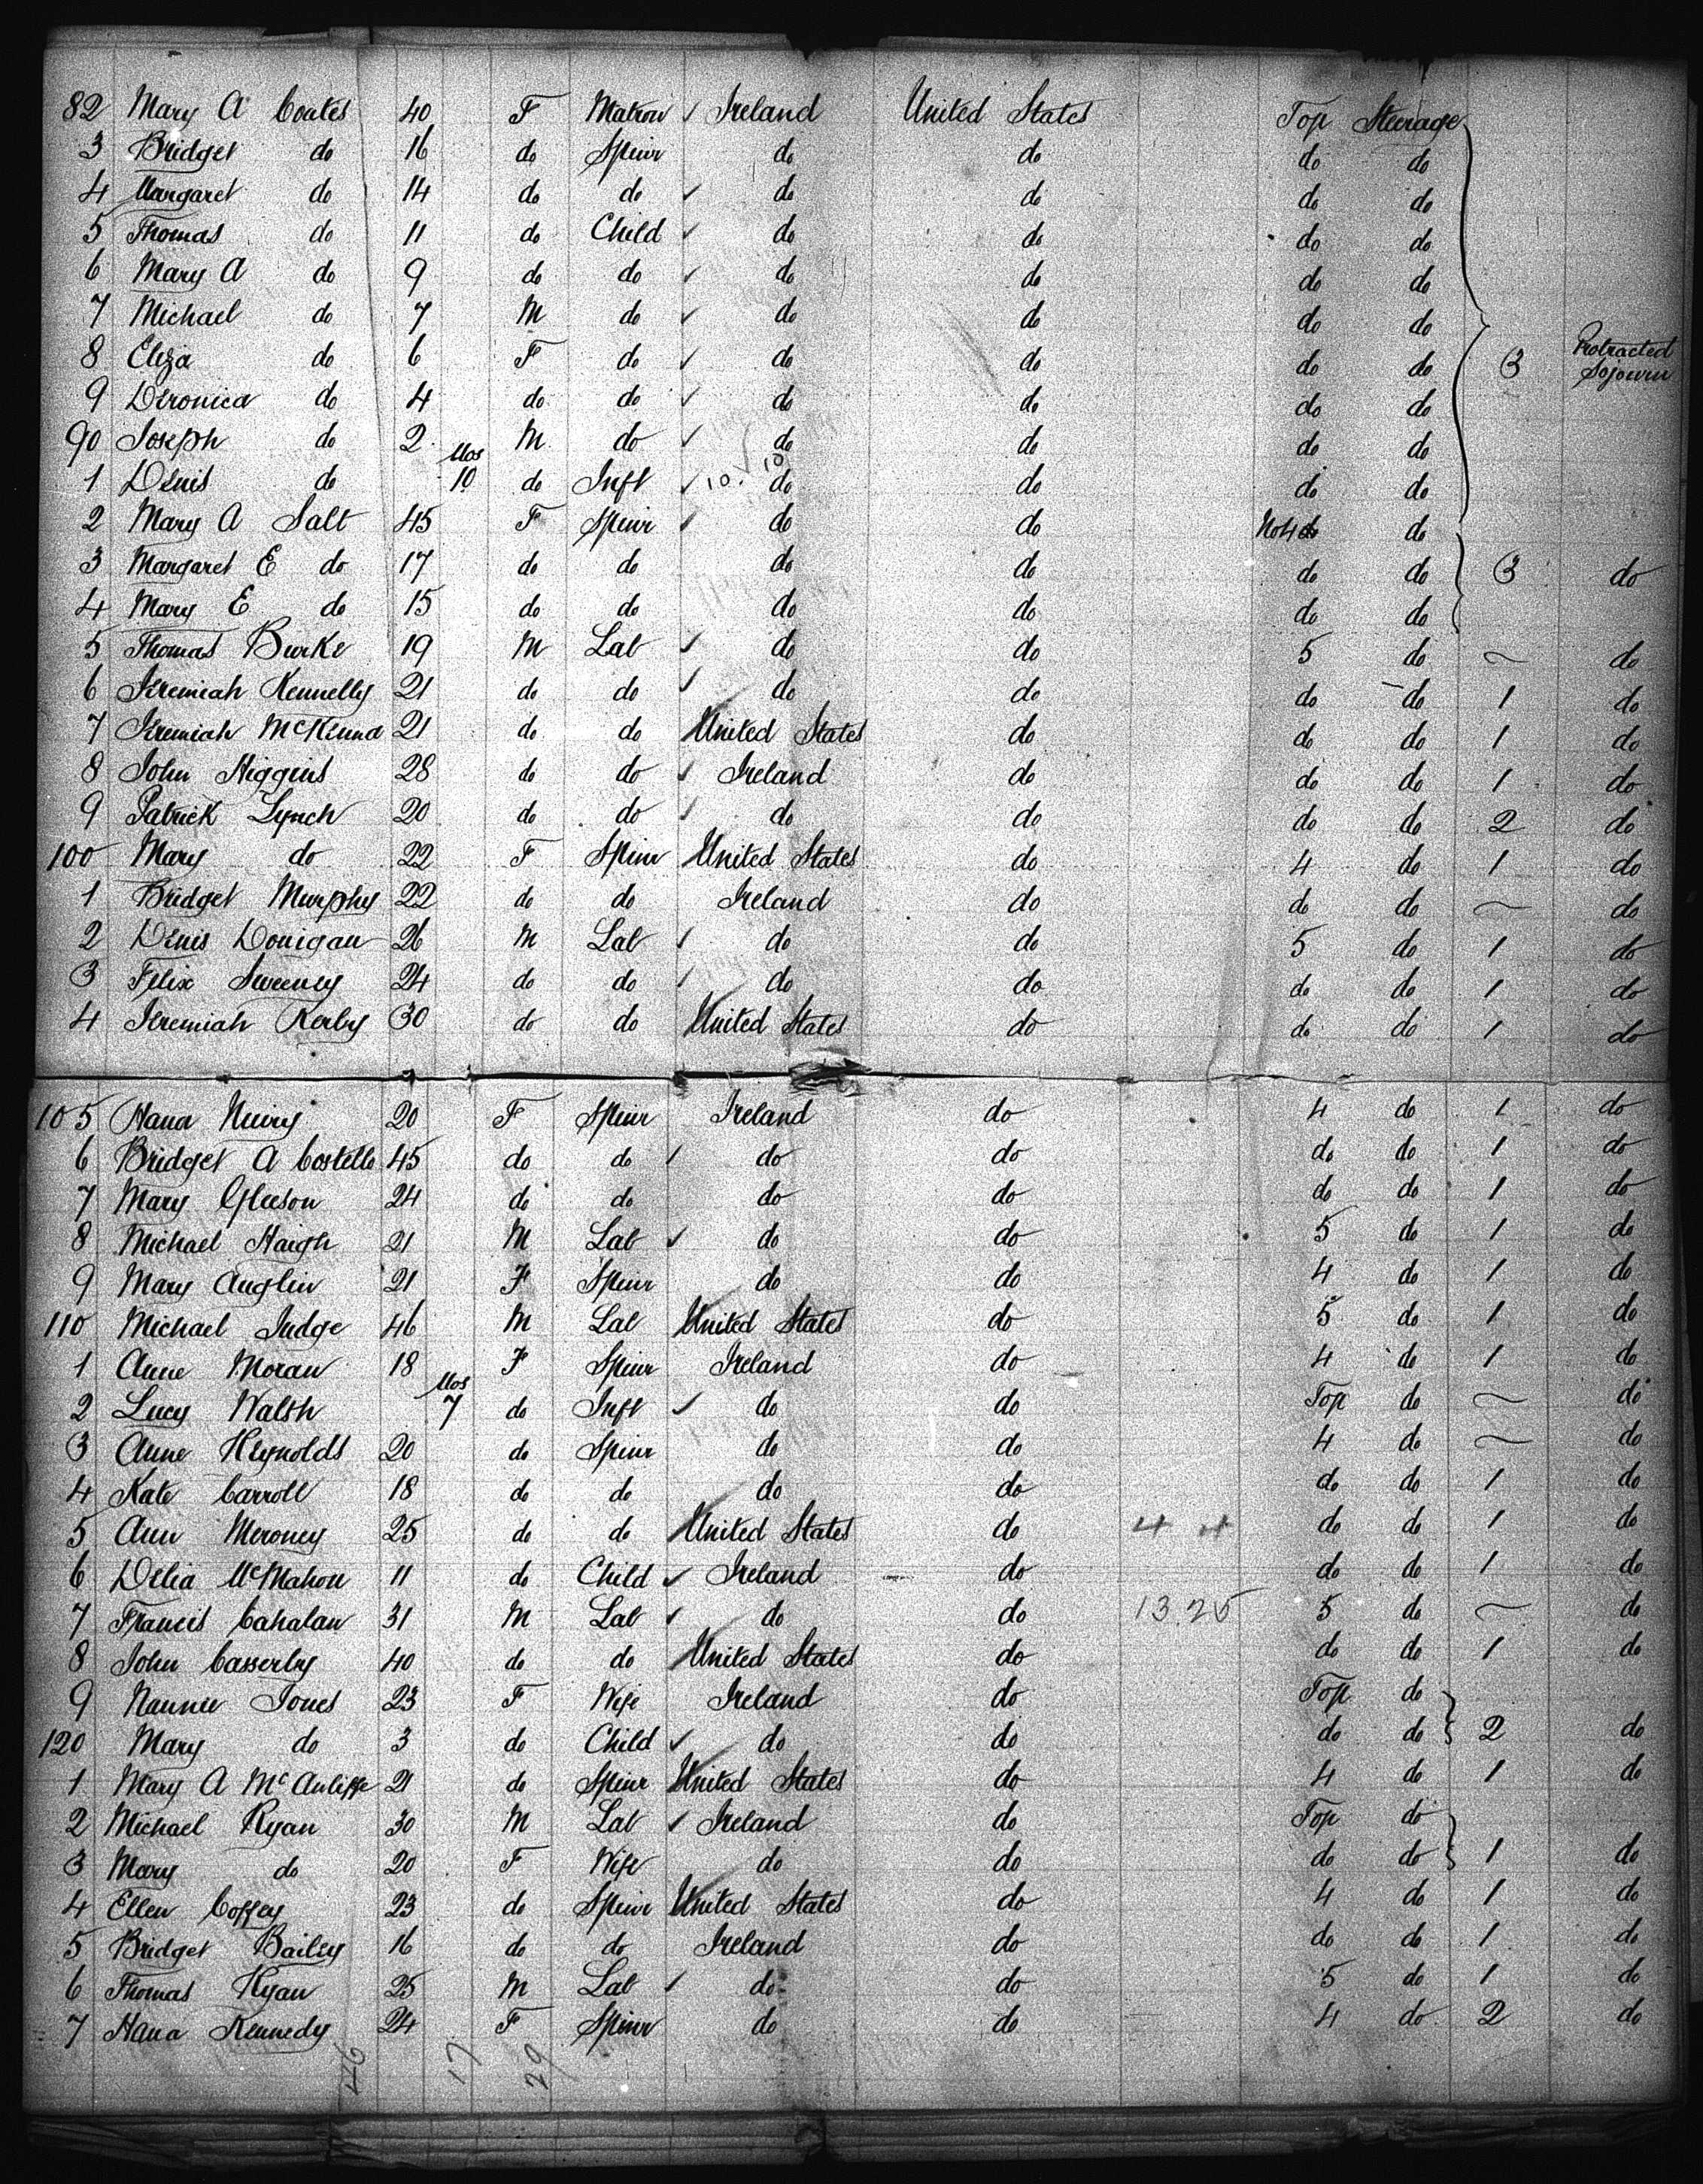 82 Mary A Coates 40 F Matron ✓ Ireland United States Top Steerage
3 Bridget do 16 do Spinr do do do do
4 Margaret do 14 do do ✓ do do do do
5 Thomas do 11 do Child ✓ do do do do
6 Mary A do 9 do do ✓ do do do do
7 Michael do 7 M do ✓ do do do do
8 Eliza do 6 F do ✓ do do do do 3 Protracted Sojourn
9 Veronica do 4 do do ✓ do do do do
90 Joseph do 2 M do ✓ do do do do
1 Denis do Mos 10 do Inft ✓ 10. ✓ 10 do do do do
2 Mary A Salt 45 F Spinr ✓ do do No 4 do do
3 Margaret E do 17 do do do do do do 3 do
4 Mary E do 15 do do do do do do
5 Thomas Burke 19 M Lab ✓ do do 5 do ~ do
6 Jeremiah Kennelly 21 do do ✓ do do do do 1 do
7 Jeremiah McKenna 21 do do United States do do do 1 do
8 John Higgins 28 do do ✓ Ireland do do do 1 do
9 Patrick Lynch 20 do do ✓ do do do do 2 do
100 Mary do 22 F Spinr United States do 4 do 1 do
1 Bridget Murphy 22 do do Ireland do do do ~ do
2 Denis Donigan 26 M Lab ✓ do do 5 do 1 do
3 Felix Sweeney 24 do do ✓ do do do do 1 do
4 Jeremiah Kerby 30 do do United States do do do 1 do
105 Hana 20 F Spinr Ireland do 4 do 1 do
6 Bridget A Costello 45 do do ✓ do do do do 1 do
7 Mary Gleeson 24 do do do do do do 1 do
8 Michael Haigh 21 M Lab ✓ do do 5 do 1 do
9 Mary Anglin 21 F Spinr do do 4 do 1 do
110 Michael Judge 46 M Lab United States do 5 do 1 do
1 Anne Moran 18 F Spinr Ireland do 4 do 1 do
2 Lucy Walsh Mos 7 do Inft ✓ do do Top do ~ do
3 Anne Reynolds 20 do Spinr do do 4 do ~ do
4 Kate Carroll 18 do do do do do do 1 do
5 Ann Meroney 25 do do United States do 4 4 do do 1 do
6 Delia McMahon 11 do Child ✓ Ireland do do do 1 do
7 Francis Cahalan 31 M Lab ✓ do do 13 25 5 do ~ do
8 John Casserly 40 do do United States do do do 1 do
9 Nannie Jones 23 F Wife Ireland do Top do
120 Mary do 3 do Child ✓ do do do do 2 do
1 Mary A McAuliffe 21 do Spinr United States do 4 do 1 do
2 Michael Ryan 30 M Lab ✓ Ireland do Top do
3 Mary do 20 F Wife do do do do 1 do
4 Ellen Coffey 23 do Spinr United States do 4 do 1 do
5 Bridget Bailey 16 do do Ireland do do do 1 do
6 Thomas Ryan 25 M Lab ✓ do do 5 do 1 do
7 Hana Kennedy 24 F Spinr do do 4 do 2 do
46 17 29